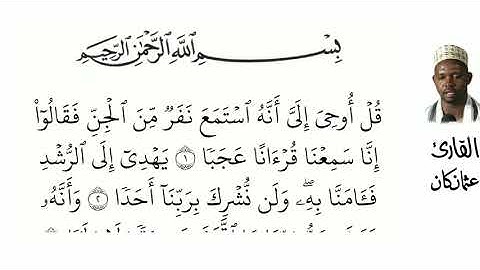 بِسْمِ ٱللَّهِ ٱلرَّحْمَٰنِ ٱلرَّحِيمِ
قُلْ أُوحِىَ إِلَىَّ أَنَّهُ ٱسْتَمَعَ نَفَرٌ مِّنَ ٱلْجِنِّ فَقَالُوٓا۟
إِنَّا سَمِعْنَا قُرْءَانًا عَجَبًا ١ يَهْدِىٓ إِلَى ٱلرُّشْدِ
فَـَٔامَنَّا بِهِۦ ۖ وَلَن نُّشْرِكَ بِرَبِّنَآ أَحَدًا ٢ وَأَنَّهُۥ
القارئ
عثمانكان